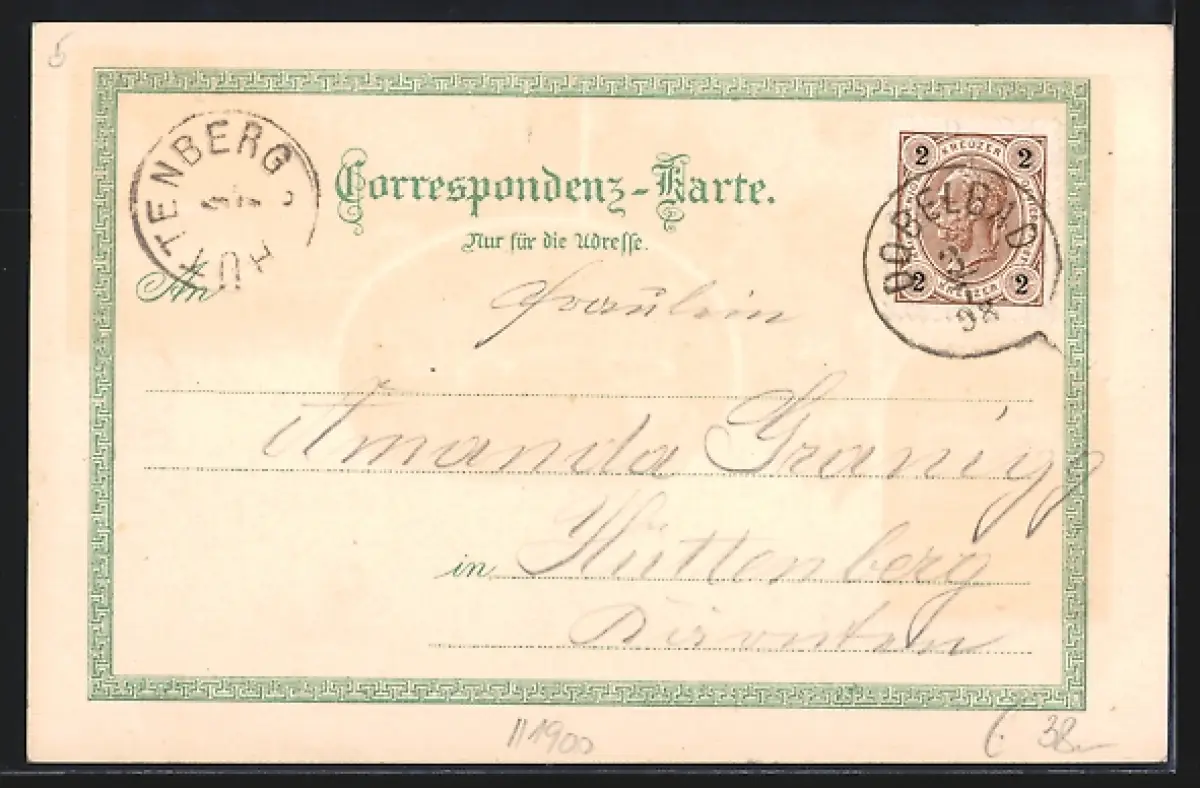 5
HÜTTENBERG
Correspondenz-Karte.
Nur für die Adresse.
2 KREUZER 2
DOBELBAD
3
98
2 KREUZER 2
An
Fräulein
Amanda Granigg
in Hüttenberg
Kärnten
1900
38.-